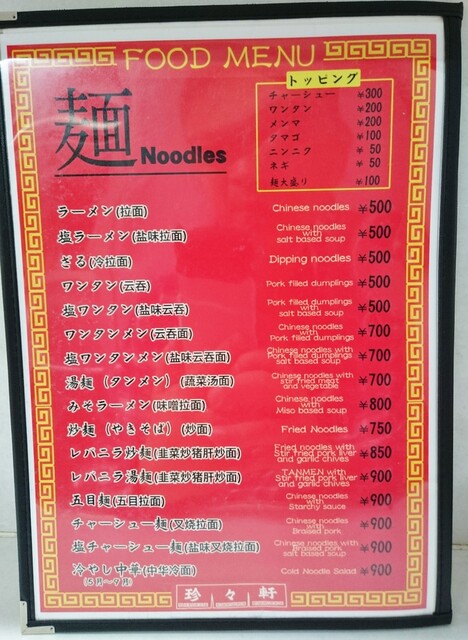 FOOD MENU
麺 Noodles
トッピング
チャーシュー ¥300
ワンタン ¥200
メンマ ¥200
タマゴ ¥100
ニンニク ¥ 50
ネギ ¥ 50
麺大盛り ¥100
ラーメン(拉面) Chinese noodles ¥500
塩ラーメン(盐味拉面) Chinese noodles with salt based soup ¥500
ざる(冷拉面) Dipping noodles ¥500
ワンタン(云吞) Pork filled dumplings ¥500
塩ワンタン(盐味云吞) Pork filled dumplings with salt based soup ¥500
ワンタンメン(云吞面) Chinese noodles with Pork filled dumplings ¥700
塩ワンタンメン(盐味云吞面) Chinese noodles with Pork filled dumplings with salt based soup ¥700
湯麺(タンメン)(蔬菜汤面) Chinese noodles with stir fried meat and vegetable ¥700
みそラーメン(味噌拉面) Chinese noodles with Miso based soup ¥800
炒麺(やきそば)(炒面) Fried Noodles ¥750
レバニラ炒麺(韭菜炒猪肝炒面) Fried noodles with Stir fried pork liver and garlic chives ¥850
レバニラ湯麺(韭菜炒猪肝炒面) TANMEN with Stir fried pork liver and garlic chives ¥900
五目麺(五目拉面) Chinese noodles with Starchy sauce ¥900
チャーシュー麺(叉烧拉面) Chinese noodles with Braised pork ¥900
塩チャーシュー麺(盐味叉烧拉面) Chinese noodles with Braised pork with salt based soup ¥900
冷やし中華(中华冷面) Cold Noodle Salad ¥900
(5月〜9月)
珍々軒